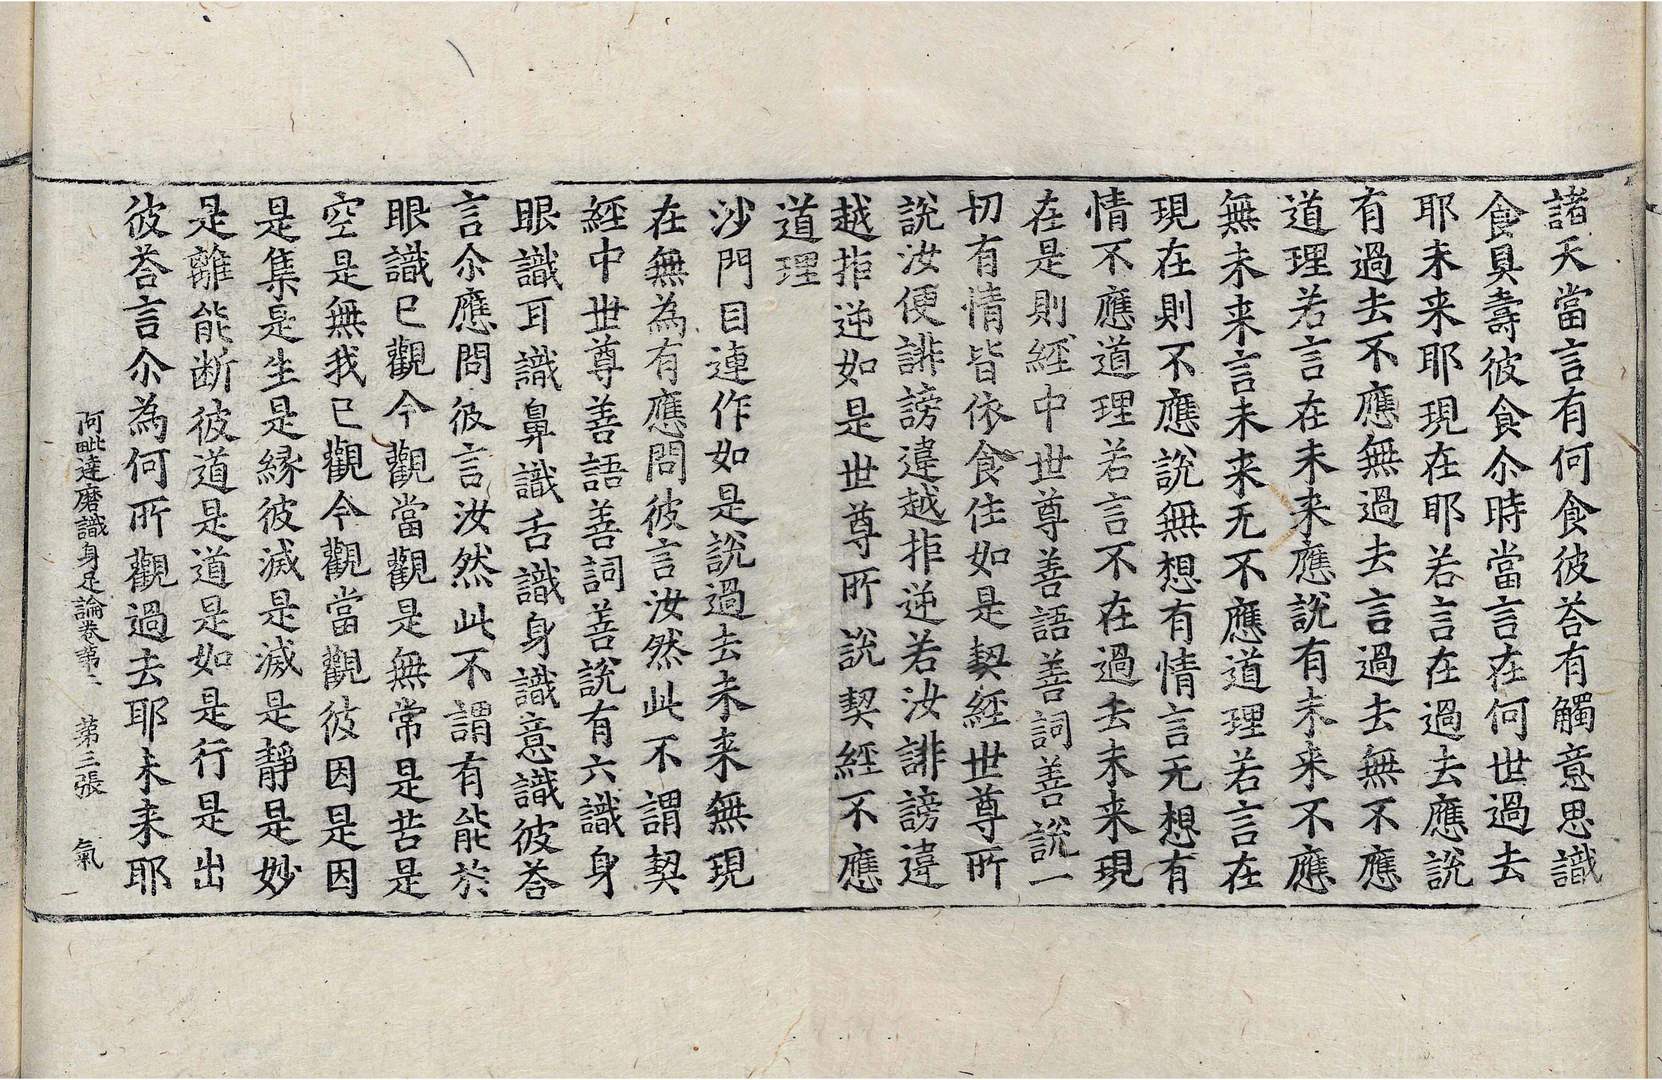 諸天當言有何食彼荅有觸意思識
食具壽彼食食尒時當言在何世過去
耶未来耶現在耶若言在過去應說
有過去不應無過去言過去無不應
道理若言在未来應說有未来不應
無未来言未来无不應道理若言在
現在則不應說無想有情言无想有
情不應道理若言不在過去未来現
在是則經中世尊善語善詞善說一
切有情皆依食住如是契經世尊所
說汝便誹謗違越拒逆若汝誹謗違
越拒逆如是世尊所說契經不應
道理
沙門目連作如是說過去未来無現
在無為有應問彼言汝然此不謂契
經中世尊善語善詞善說有六識身
眼識耳識鼻識舌識身識意識彼荅
言尒應問彼言汝然此不謂有能於
眼識已觀今觀當觀是無常是苦是
空是無我已觀今觀當觀彼因是因
是集是生是縁彼滅是滅是靜是妙
是離能断彼道是道是如是行是出
彼荅言尒為何所觀過去耶未来耶
阿毗達磨識身足論卷第 第三張 氣